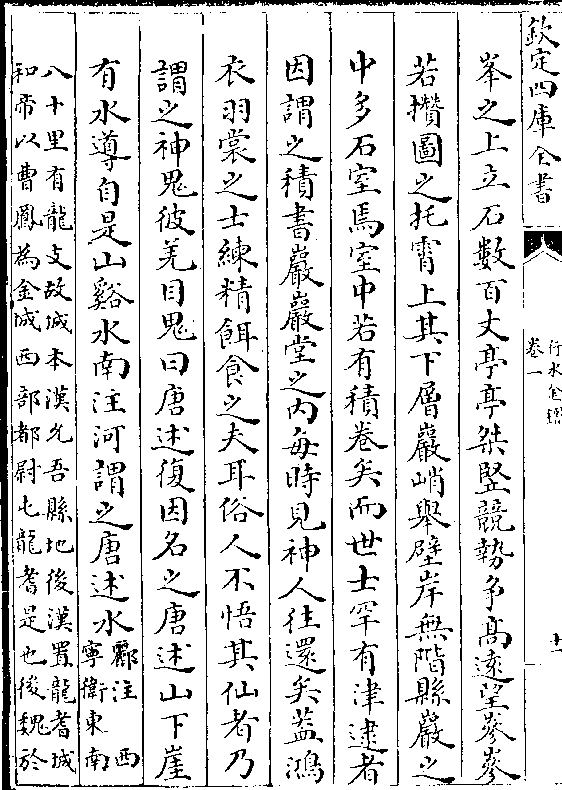 欽定四庫全書
行水金鑑
卷一
十一
峯之上立石數百丈亭亭桀竪競勢争髙逺望嵾嵾
若攢圖之托霄上其下層巖峭舉壁岸無階縣巖之
中多石室焉室中若有積卷矣而世士罕有津逮者
因謂之積書巖巖堂之内每時見神人徃還矣蓋鴻
衣羽裳之士練精餌食之夫耳俗人不悟其仙者乃
謂之神鬼彼羌目鬼曰唐述復因名之唐述山下崖
有水導自是山谿水南注河謂之唐述水
酈注 西
寧衛東南
八十里有龍支故城本漢允吾縣地後漢置龍耆城
和帝以曹鳳為金城西部都尉屯龍耆是也後魏於